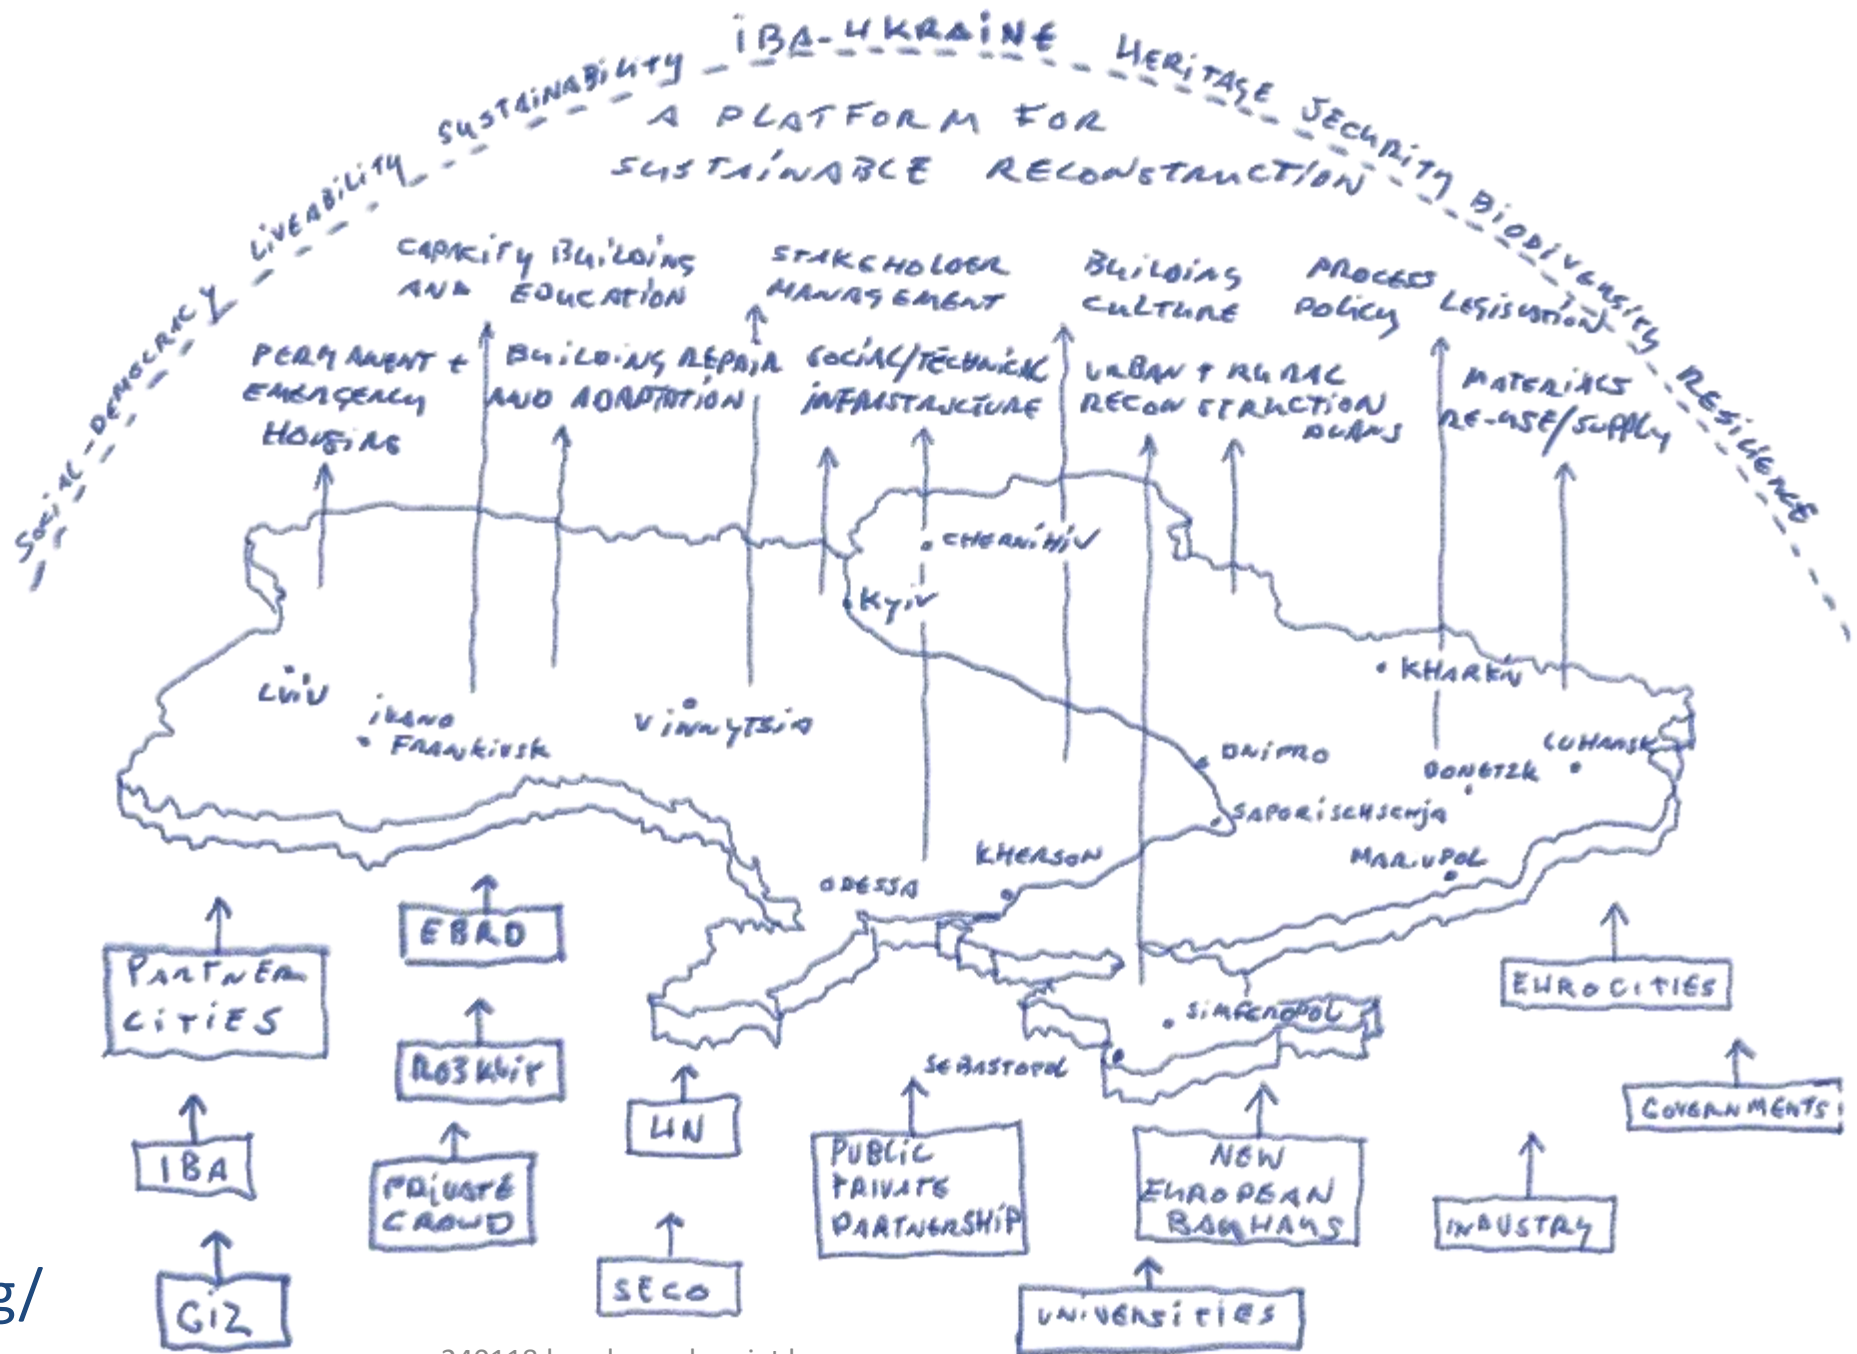 IBA-UKRAINE
SOCIAL-DEMOCRACY LIVEABILITY SUSTAINABILITY
HERITAGE SECURITY BIODIVERSITY RESILIENCE
A PLATFORM FOR
SUSTAINABLE RECONSTRUCTION
CAPACITY BUILDING
AND EDUCATION
STAKEHOLDER
MANAGEMENT
BUILDING
CULTURE
PROCESS
POLICY
LEGISLATION
PERMANENT +
EMERGENCY
HOUSING
BUILDING REPAIR
AND ADAPTATION
SOCIAL/TECHNICAL
INFRASTRUCTURE
URBAN + RURAL
RECONSTRUCTION
PLANS
MATERIALS
RE-USE/SUPPLY
CHERNIHIV
KYIV
LVIV
IVANO
FRANKIVSK
VINNYTSIA
KHARKIV
LUHANSK
DNIPRO
DONETZK
SAPORISCHSCHJA
MARIUPOL
KHERSON
ODESSA
SIMFEROPOL
SEBASTOPOL
PARTNER
CITIES
IBA
GIZ
EBRD
RO3KWIT
PRIVATE
CROWD
UN
SECO
PUBLIC
PRIVATE
PARTNERSHIP
NEW
EUROPEAN
BAUHAUS
UNIVERSITIES
EUROCITIES
GOVERNMENTS
INDUSTRY
g/